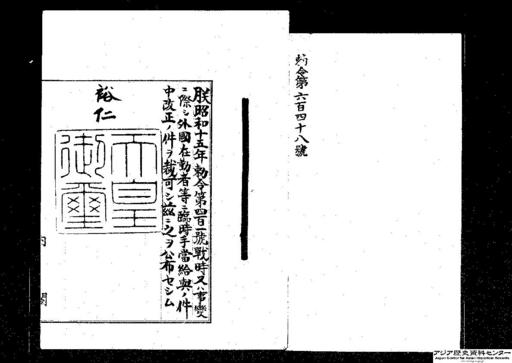 勅令第六百四十八號
朕昭和十五年勅令第四百一號戰時又ハ事變
ニ際シ外國在勤者等ニ臨時手當給與ノ件
中改正ノ件ヲ裁可シ茲ニ之ヲ公布セシム
裕仁
天皇
御璽
内閣
アジア歴史資料センター
Japan Center for Asian Historical Records